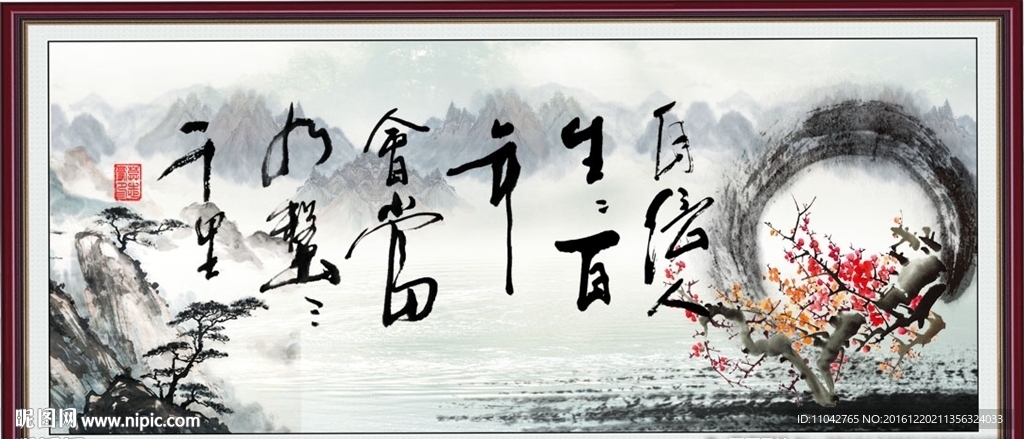 自信人
生二百
年
會當
水擊三
千里
昵图网 www.nipic.com
ID:11042765 NO:20161220211356324033